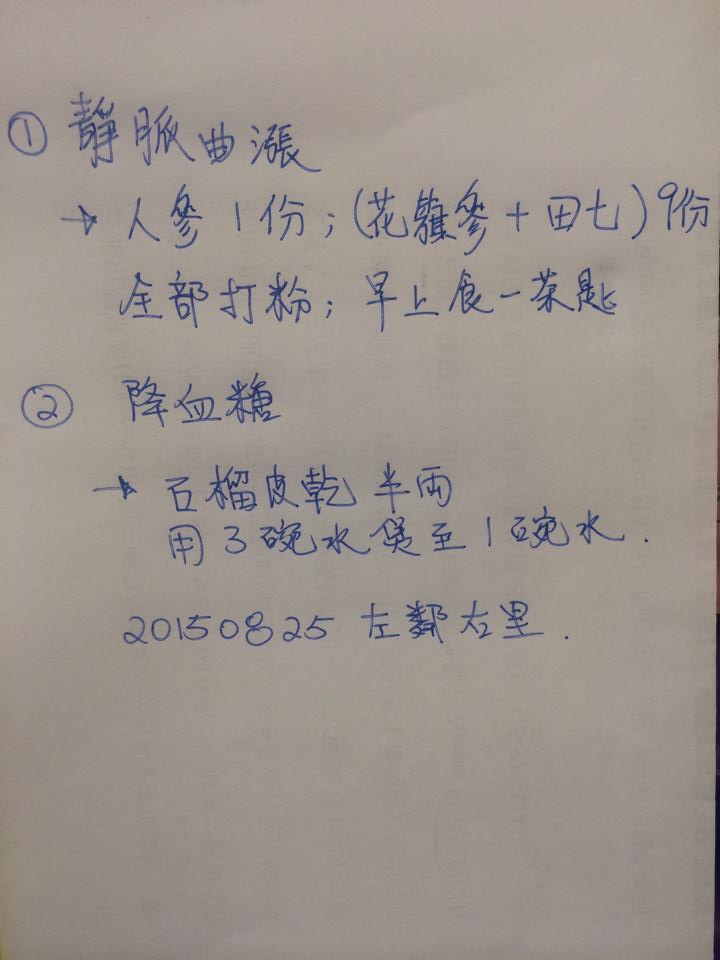 ① 靜脈曲漲
→ 人參 1份；(花旗參 + 田七) 9份
全部打粉；早上食一茶匙
② 降血糖
→ 石榴皮乾 半両
用 3 碗水 煲至 1 碗水．
20150825 左鄰右里．